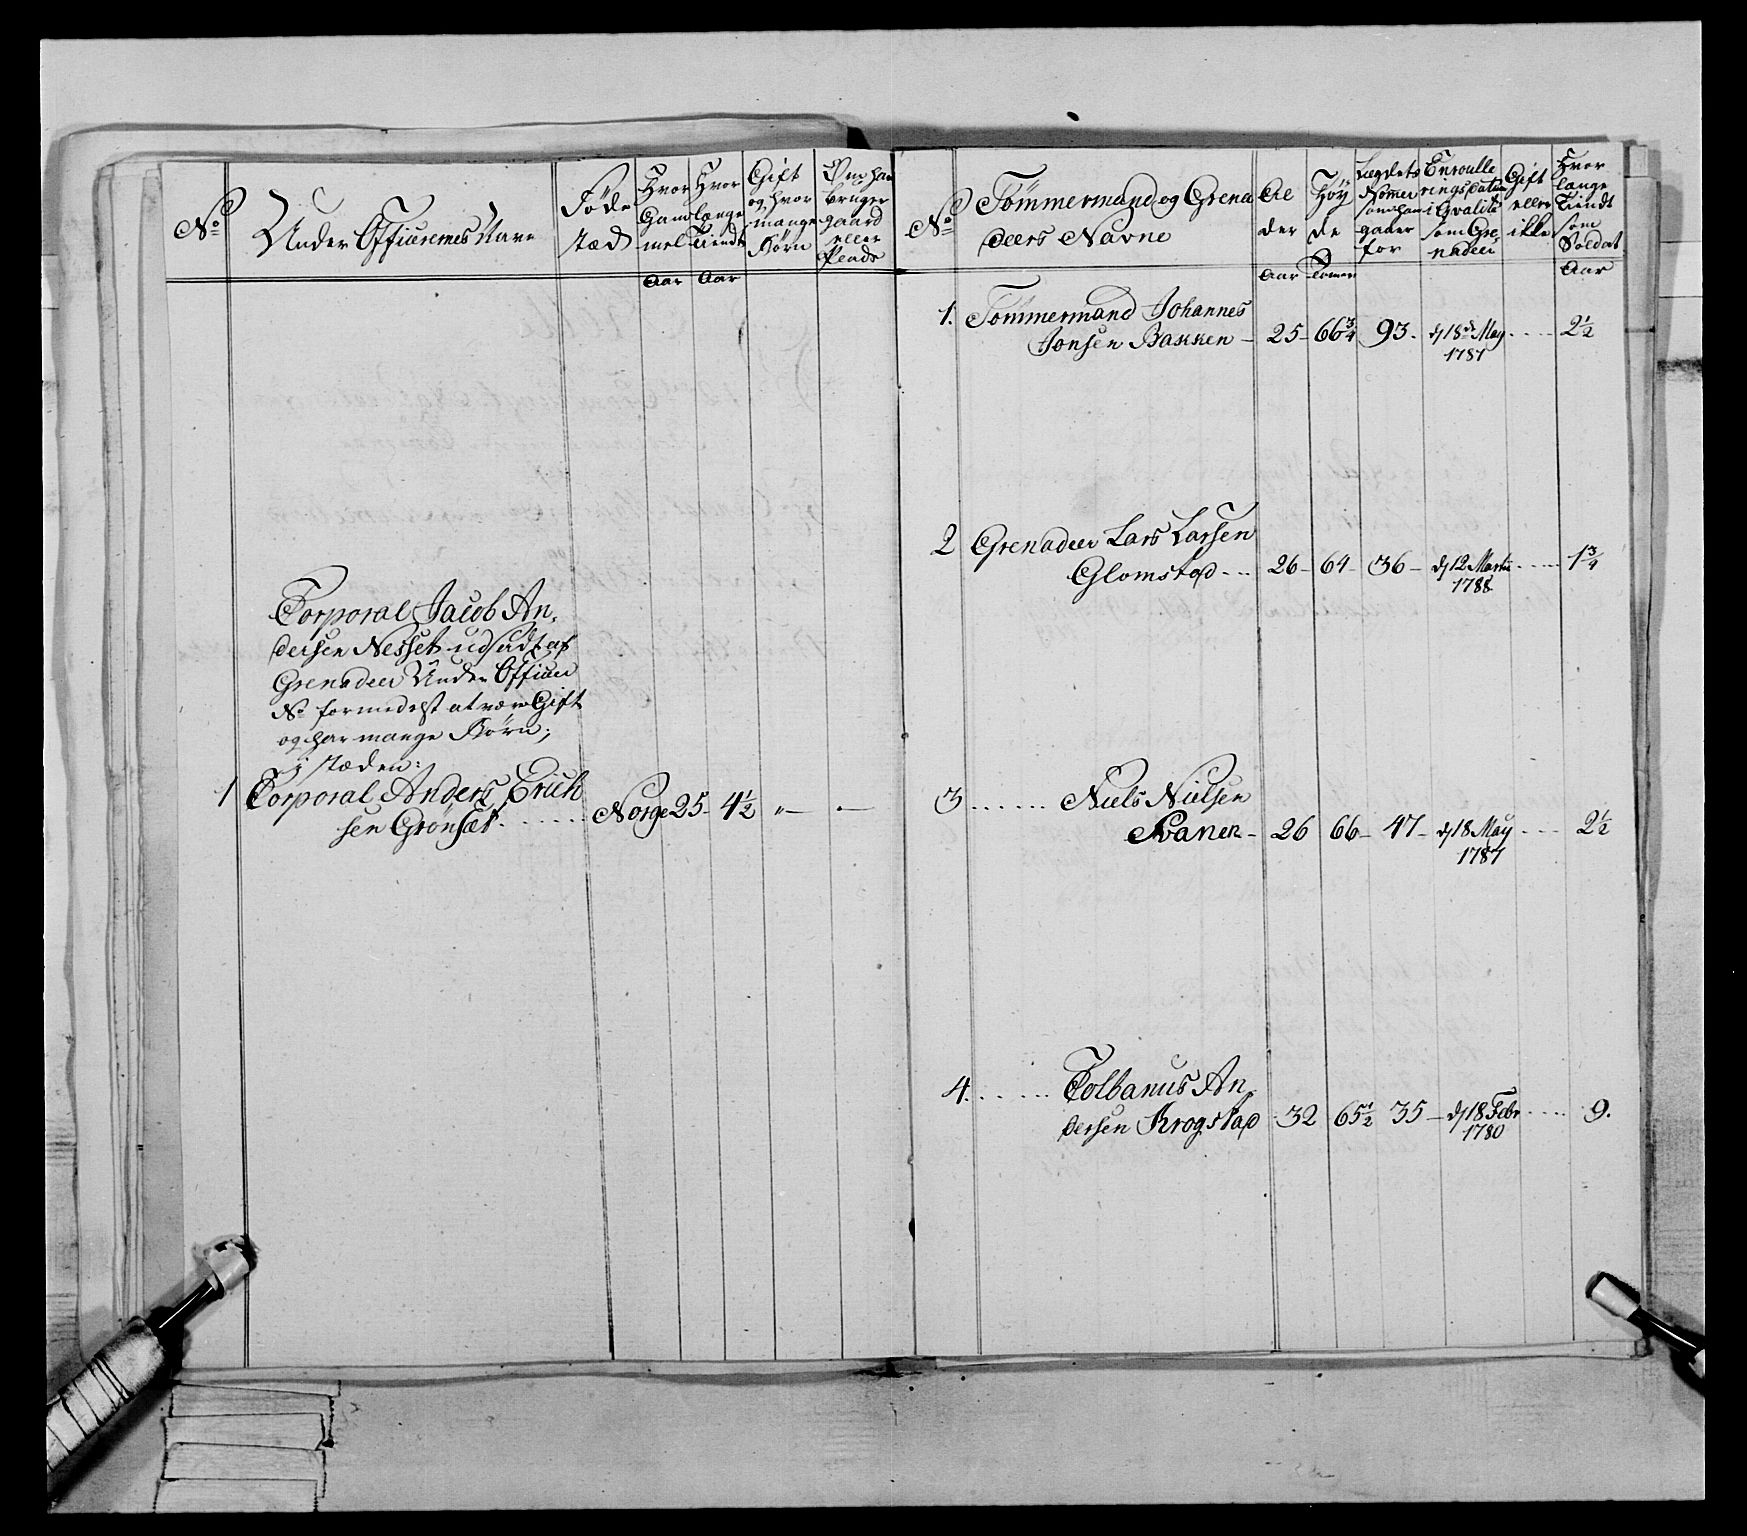 No
Under Officerernes Navne
Føde
stæd
Hvor
Gam̄
mel
Aar
Hvor
længe
Tiendt
Aar
Gift
og hvor
mange
Børn
Om han
bruger
gaard
eller
Plads
Corporal Jacob An,,
dersen Nesset udsadt af
Grenadeer Under Officer
No formedelst at være Gift
og har mange Børn;
i stæden:
1 Corporal Anders Erich
sen Grønset. Norge 25- 4½ „— —
No
Tømmermand og Grena
deers Navne
Al
der
Aar
Høy
de
Tomer
Lægdets
Nomer
som han
gaaer
for
Enroulle
rings Datum
i Qvalité
som Gre,
nadeer
Gift
eller
ikke
Hvor
lange
Tiendt
som
Soldat
Aar
1. Tømmermand Johannes
Jonsen Bakken - 25- 66¾ 93. d 18de May 1787 2½
2 Grenadeer Lars Larsen
Glomstad 26- 64- 36- d 12 Martii 1788 1¾
3 Niels Nielsen
Svanen- 26 66- 47- d 18 May 1787 2½
4. Colbanus An,
dersen Krogstad 32 65½ 35- d 18 Febr 1780 9.